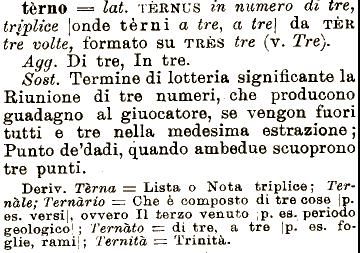 tèrno = lat. TÈRNUS in numero di tre,
triplice |onde tèrni a tre, a tre| da TÈR
tre volte, formato su TRÈS tre (v. Tre).
Agg. Di tre, In tre.
Sost. Termine di lotteria significante la
Riunione di tre numeri, che producono
guadagno al giuocatore, se vengon fuori
tutti e tre nella medesima estrazione;
Punto de'dadi, quando ambedue scuoprono
tre punti.
Deriv. Tèrna = Lista o Nota triplice; Ter-
nàle; Ternàrio = Che è composto di tre cose |p.
es. versi|, ovvero Il terzo venuto |p. es. periodo
geologico|; Ternàto = di tre, a tre |p. es. fo-
glie, rami|; Ternità = Trinità.